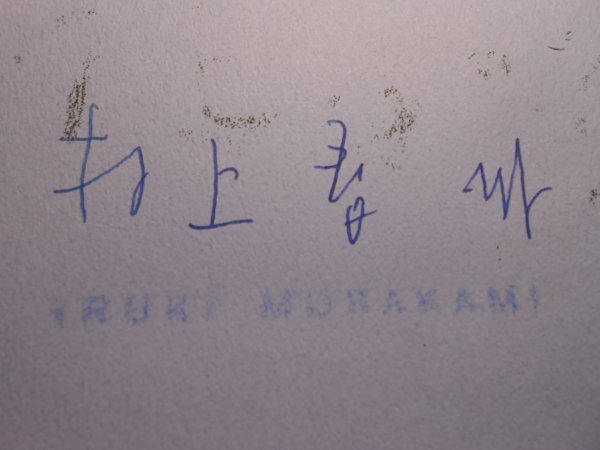 村上春樹
ARUKI MURAKAMI